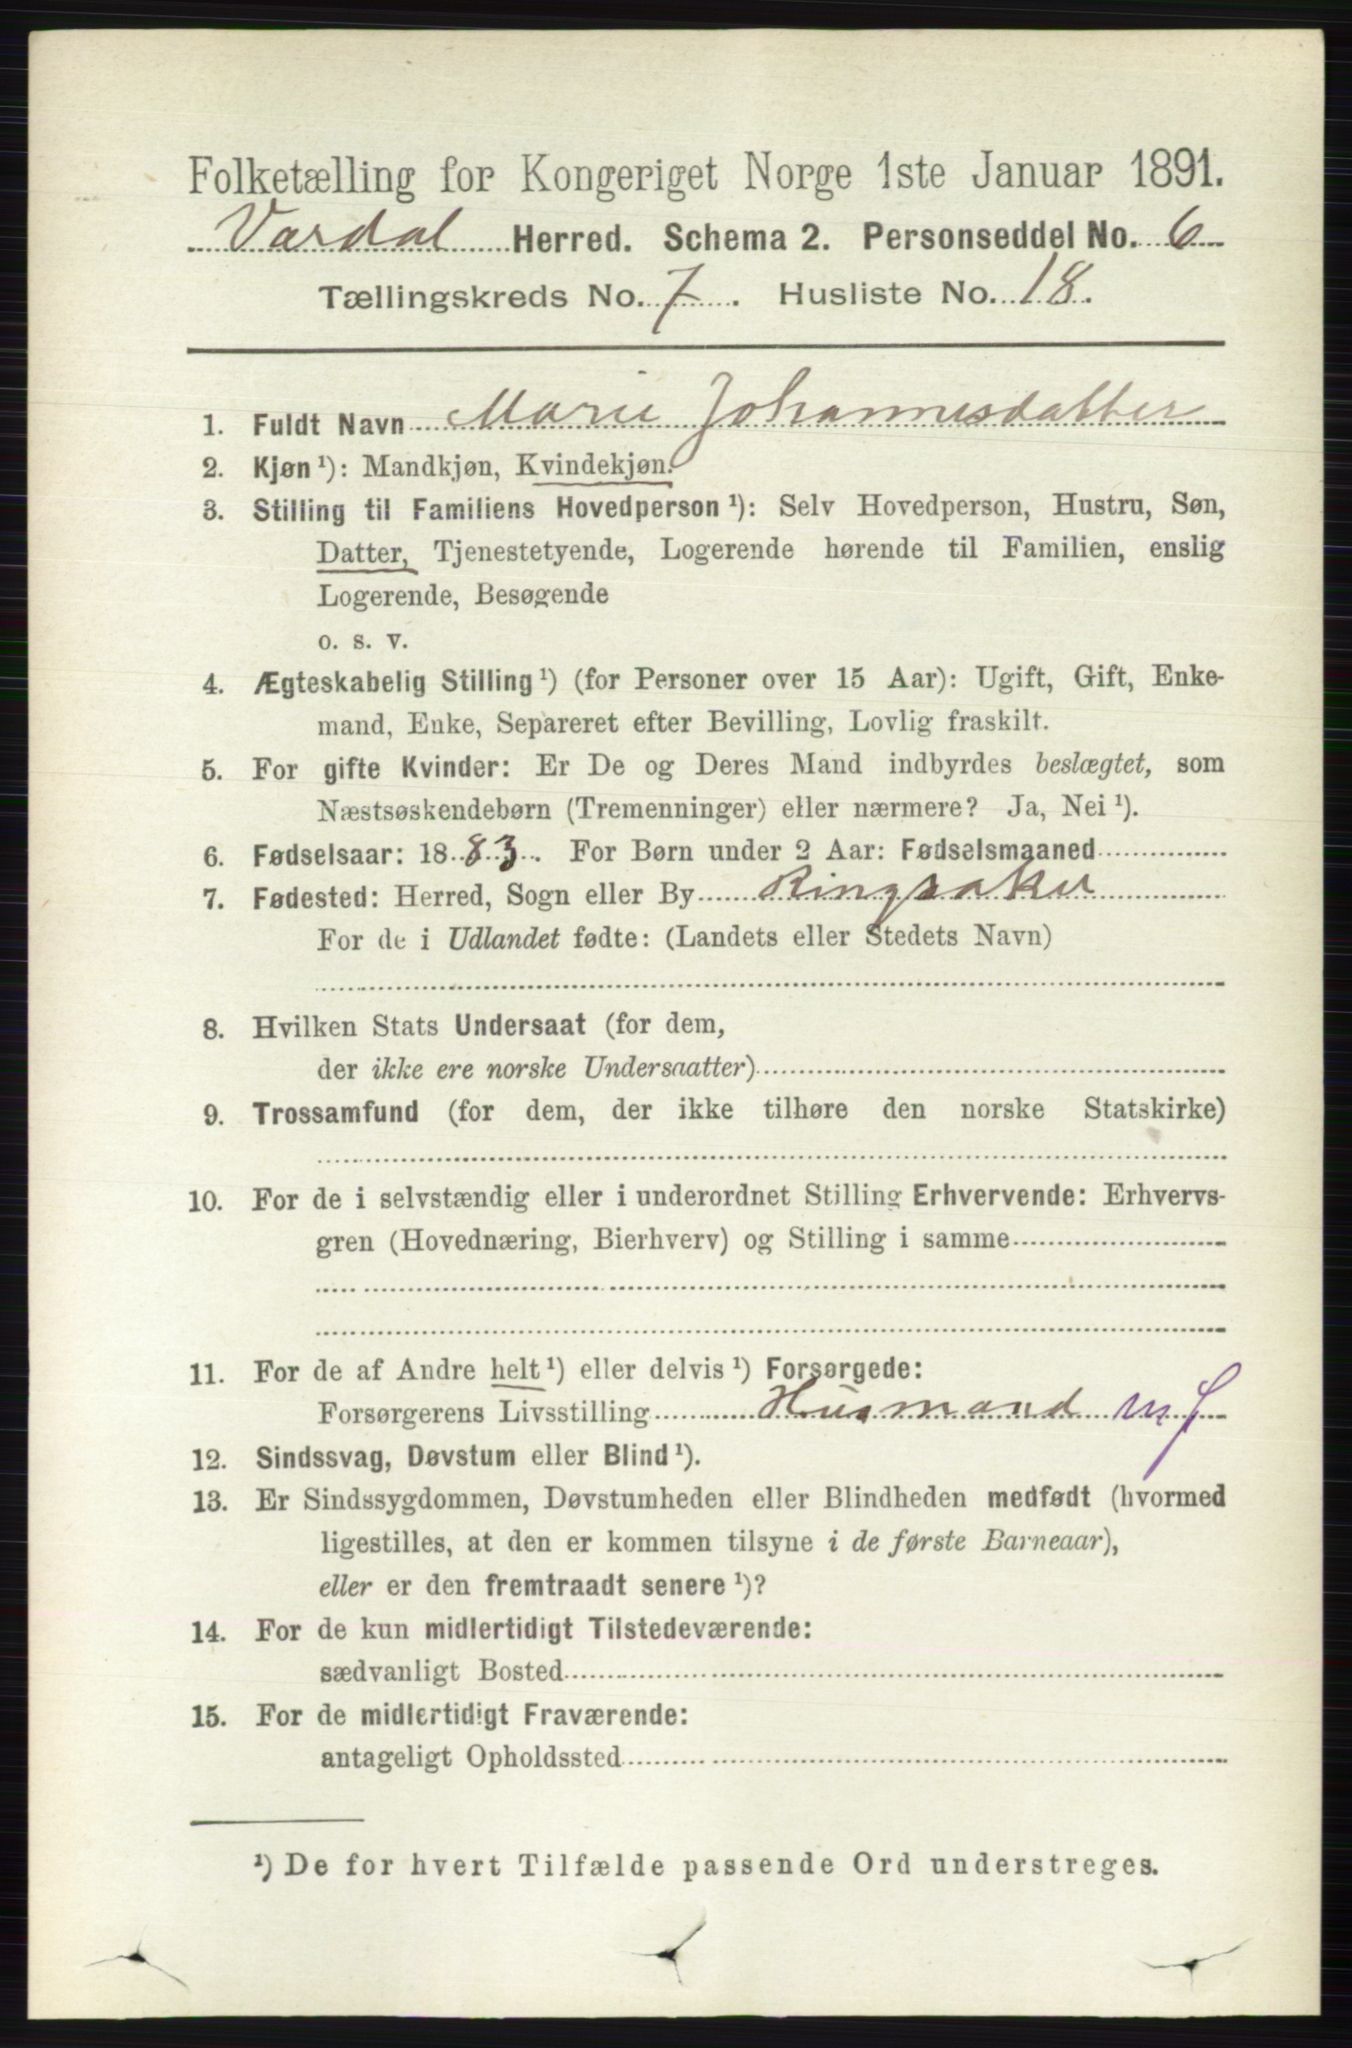 Folketælling for Kongeriget Norge 1ste Januar 1891.
Vardal Herred. Schema 2. Personseddel No. 6
Tællingskreds No. 7. Husliste No. 18.
1. Fuldt Navn Marie Johannesdatter
2. Kjøn ¹): Mandkjøn, Kvindekjøn.
3. Stilling til Familiens Hovedperson ¹): Selv Hovedperson, Hustru, Søn,
Datter, Tjenestetyende, Logerende hørende til Familien, enslig
Logerende, Besøgende
o. s. v.
4. Ægteskabelig Stilling ¹) (for Personer over 15 Aar): Ugift, Gift, Enke-
mand, Enke, Separeret efter Bevilling, Lovlig fraskilt.
5. For gifte Kvinder: Er De og Deres Mand indbyrdes beslægtet, som
Næstsøskendebørn (Tremenninger) eller nærmere? Ja, Nei ¹).
6. Fødselsaar: 1883. For Børn under 2 Aar: Fødselsmaaned
7. Fødested: Herred, Sogn eller By Ringsaker
For de i Udlandet fødte: (Landets eller Stedets Navn)
8. Hvilken Stats Undersaat (for dem,
der ikke ere norske Undersaatter)
9. Trossamfund (for dem, der ikke tilhøre den norske Statskirke)
10. For de i selvstændig eller i underordnet Stilling Erhvervende: Erhvervs-
gren (Hovednæring, Bierhverv) og Stilling i samme
11. For de af Andre helt ¹) eller delvis ¹) Forsørgede:
Forsørgerens Livsstilling Husmand mJ
12. Sindssvag, Døvstum eller Blind ¹).
13. Er Sindssygdommen, Døvstumheden eller Blindheden medfødt (hvormed
ligestilles, at den er kommen tilsyne i de første Barneaar),
eller er den fremtraadt senere ¹)?
14. For de kun midlertidigt Tilstedeværende:
sædvanligt Bosted
15. For de midlertidigt Fraværende:
antageligt Opholdssted
¹) De for hvert Tilfælde passende Ord understreges.